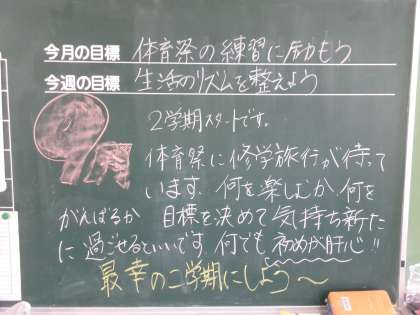 今月の目標 体育祭の練習に励もう
今週の目標 生活のリズムを整えよう
2学期スタートです。
体育祭に修学旅行が待って
います。何を楽しむか、何を
がんばるか 目標を決めて気持ち新た
に過ごせるといいです。何でも初めが肝心!!
最幸の二学期にしよう〜